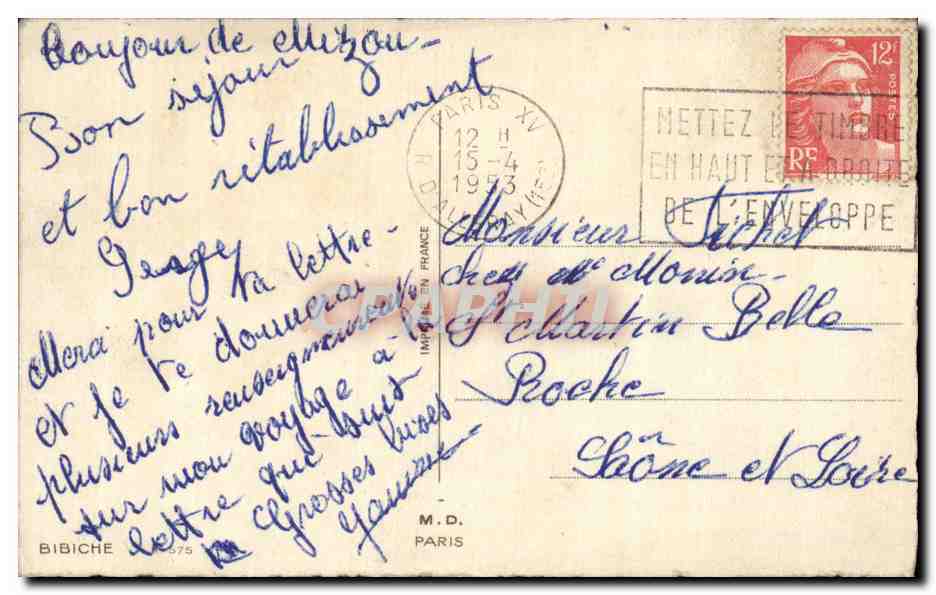 Bonjour de Mizou -
Bon séjour
et bon rétablissement
Georges
Merci pour ta lettre -
et je te donnerai
plusieurs renseignements
sur mon voyage à
lettre qui suit
Grosses bises
BIBICHE 575
M.D.
PARIS
IMPRIMÉ EN FRANCE
PARIS XV
12 H
15-4
1953
R. D'ALLERAY (15e)
METTEZ LE TIMBRE
EN HAUT ET A DROITE
DE L'ENVELOPPE
12F
POSTES
RF
CPAPHIL
Monsieur Fichet
chez Mr Monin
St Martin Belle
Roche
Saône et Loire